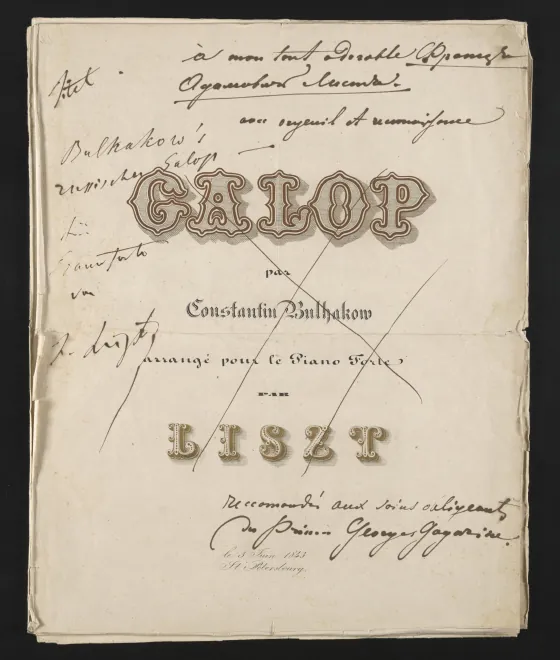 à mon tout adorable
avec orgueil et reconnaissance
Titel
Bulhakow's
russischer Galop
für
Pianoforte
von
F. Liszt
GALOP
par
Constantin Bulhakow
arrangé pour le Piano Forte
PAR
LISZT
reccomandés aux soins obligeants
du Prince Georges Gagarine.
le 3 Juin 1843
St Petersbourg.